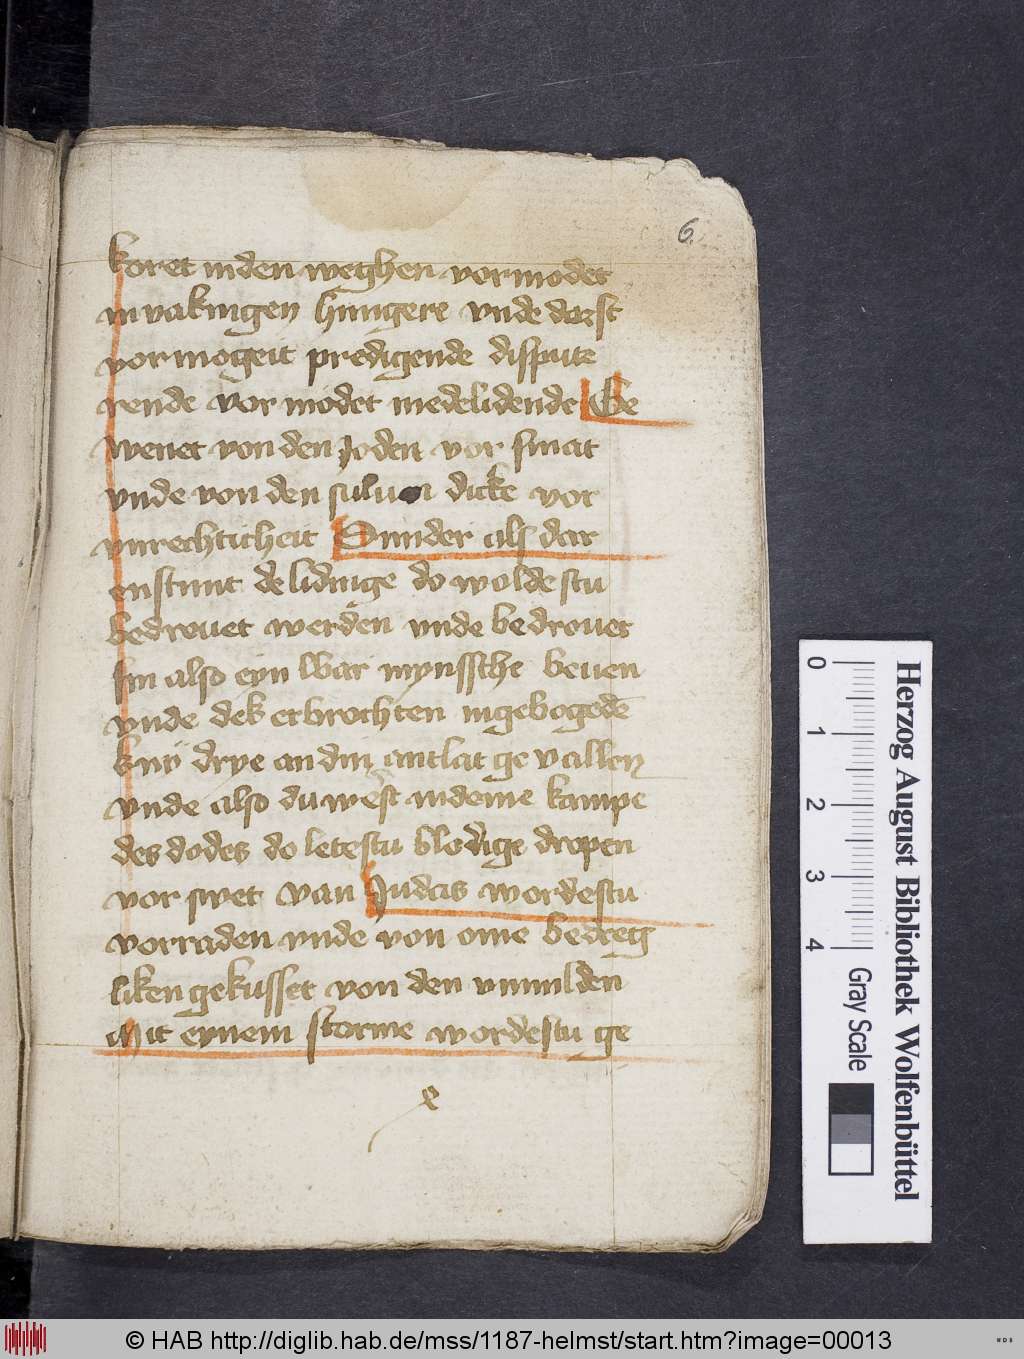 6
koret in den weghen vormodet
in vakingen hungere vnde dorst
vormogeit predigende dispute
rende vor modet medelidende Be
wenet von den Joden vor smat
vnde von den suluen dicke vor
vnrechticheit Sunder als dar
enstunt de lidinge do woldestu
bedrouet werden vnde bedrouet
sin also eyn war mynssche beuen
vnde dek etbrochten ingebogede
knij drye an din antlat ge vallen
vnde also du west in deme kampe
des dodes do letestu blodige dropen
vor swet van Judas wordestu
vorraden vnde von ome bedreg
liken gekusset von den vnmilden
Mit eynem storme wordestu ge
Herzog August Bibliothek Wolfenbüttel
0 1 2 3 4 Gray Scale
© HAB http://diglib.hab.de/mss/1187-helmst/start.htm?image=00013